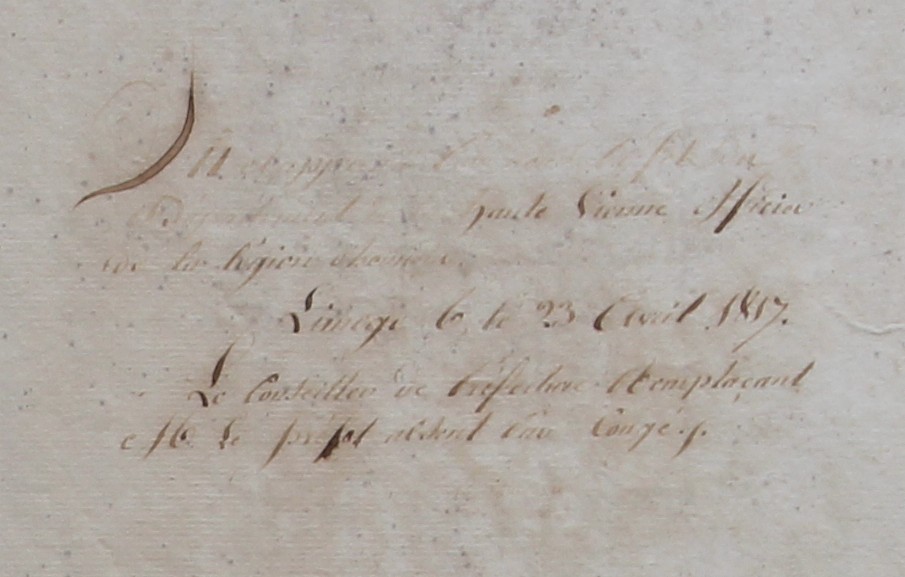 Vu et approuvé par nous Préfet du
Département de la haute Vienne officier
de la légion d'honneur
Limoges le 23 Avril 1817.
Le Conseiller de Préfecture Remplaçant
M. le préfet absent par Congé